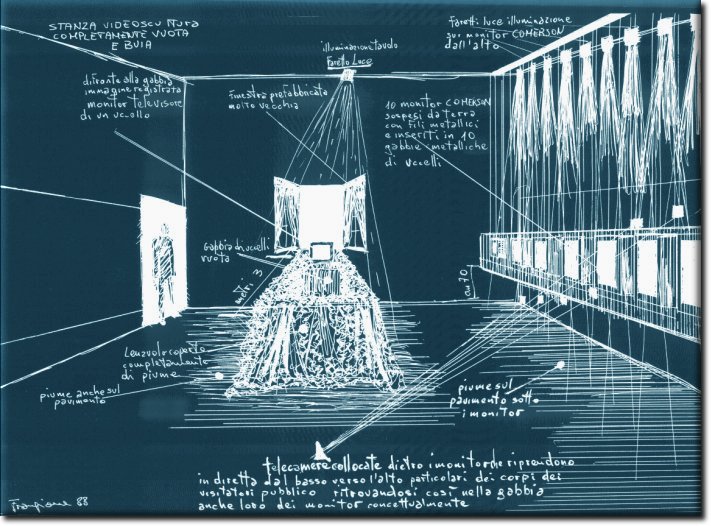 STANZA VIDEOSCULTURA
COMPLETAMENTE VUOTA
E BUIA
illuminazione tavolo
Faretto Luce
Faretti luce illuminazione
sui monitor COMERSON
dall'alto
difronte alla gabbia
immagine registrata
monitor televisore
di un uccello
finestra prefabbricata
molto vecchia
10 monitor COMERSON
sospesi da terra
con fili metallici
e inseriti in 10
gabbie metalliche
di uccelli
Gabbia di uccelli
vuota
metri 3
cm 70
Lenzuolo coperto
completamente
di piume
piume anche sul
pavimento
piume sul
pavimento sotto
i monitor
telecamere collocate dietro i monitor che riprendono
in diretta dal basso verso l'alto particolari dei corpi dei
visitatori pubblico ritrovandosi così nella gabbia
anche loro dei monitor concettualmente
Frangione 88